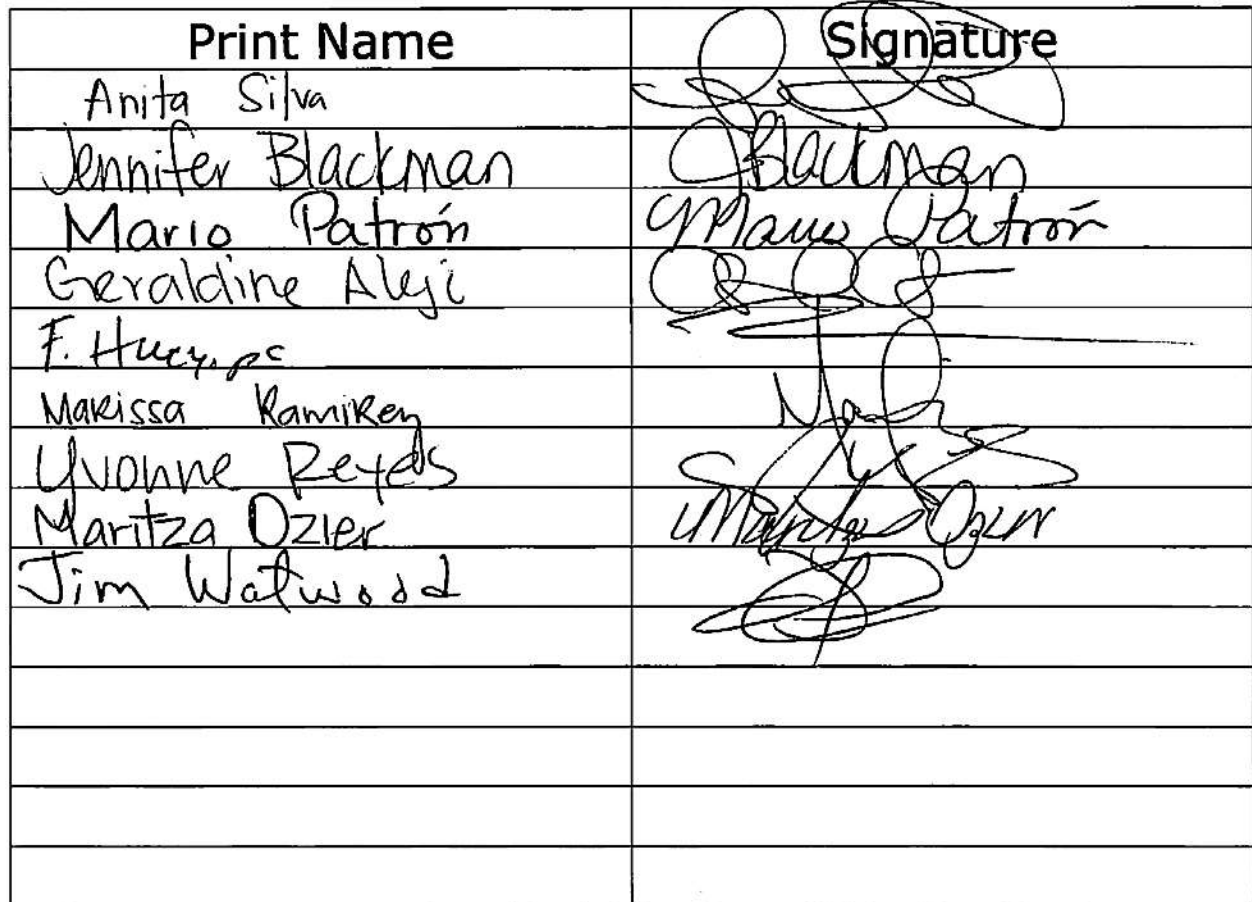 Print Name Signature
Anita Silva
Jennifer Blackman JBlackman
Mario Patrón Mario Patrón
Geraldine Aleji
F.
Marissa Ramirez
Yvonne Reyes
Maritza Ozier Maritza Ozier
Jim Watwood